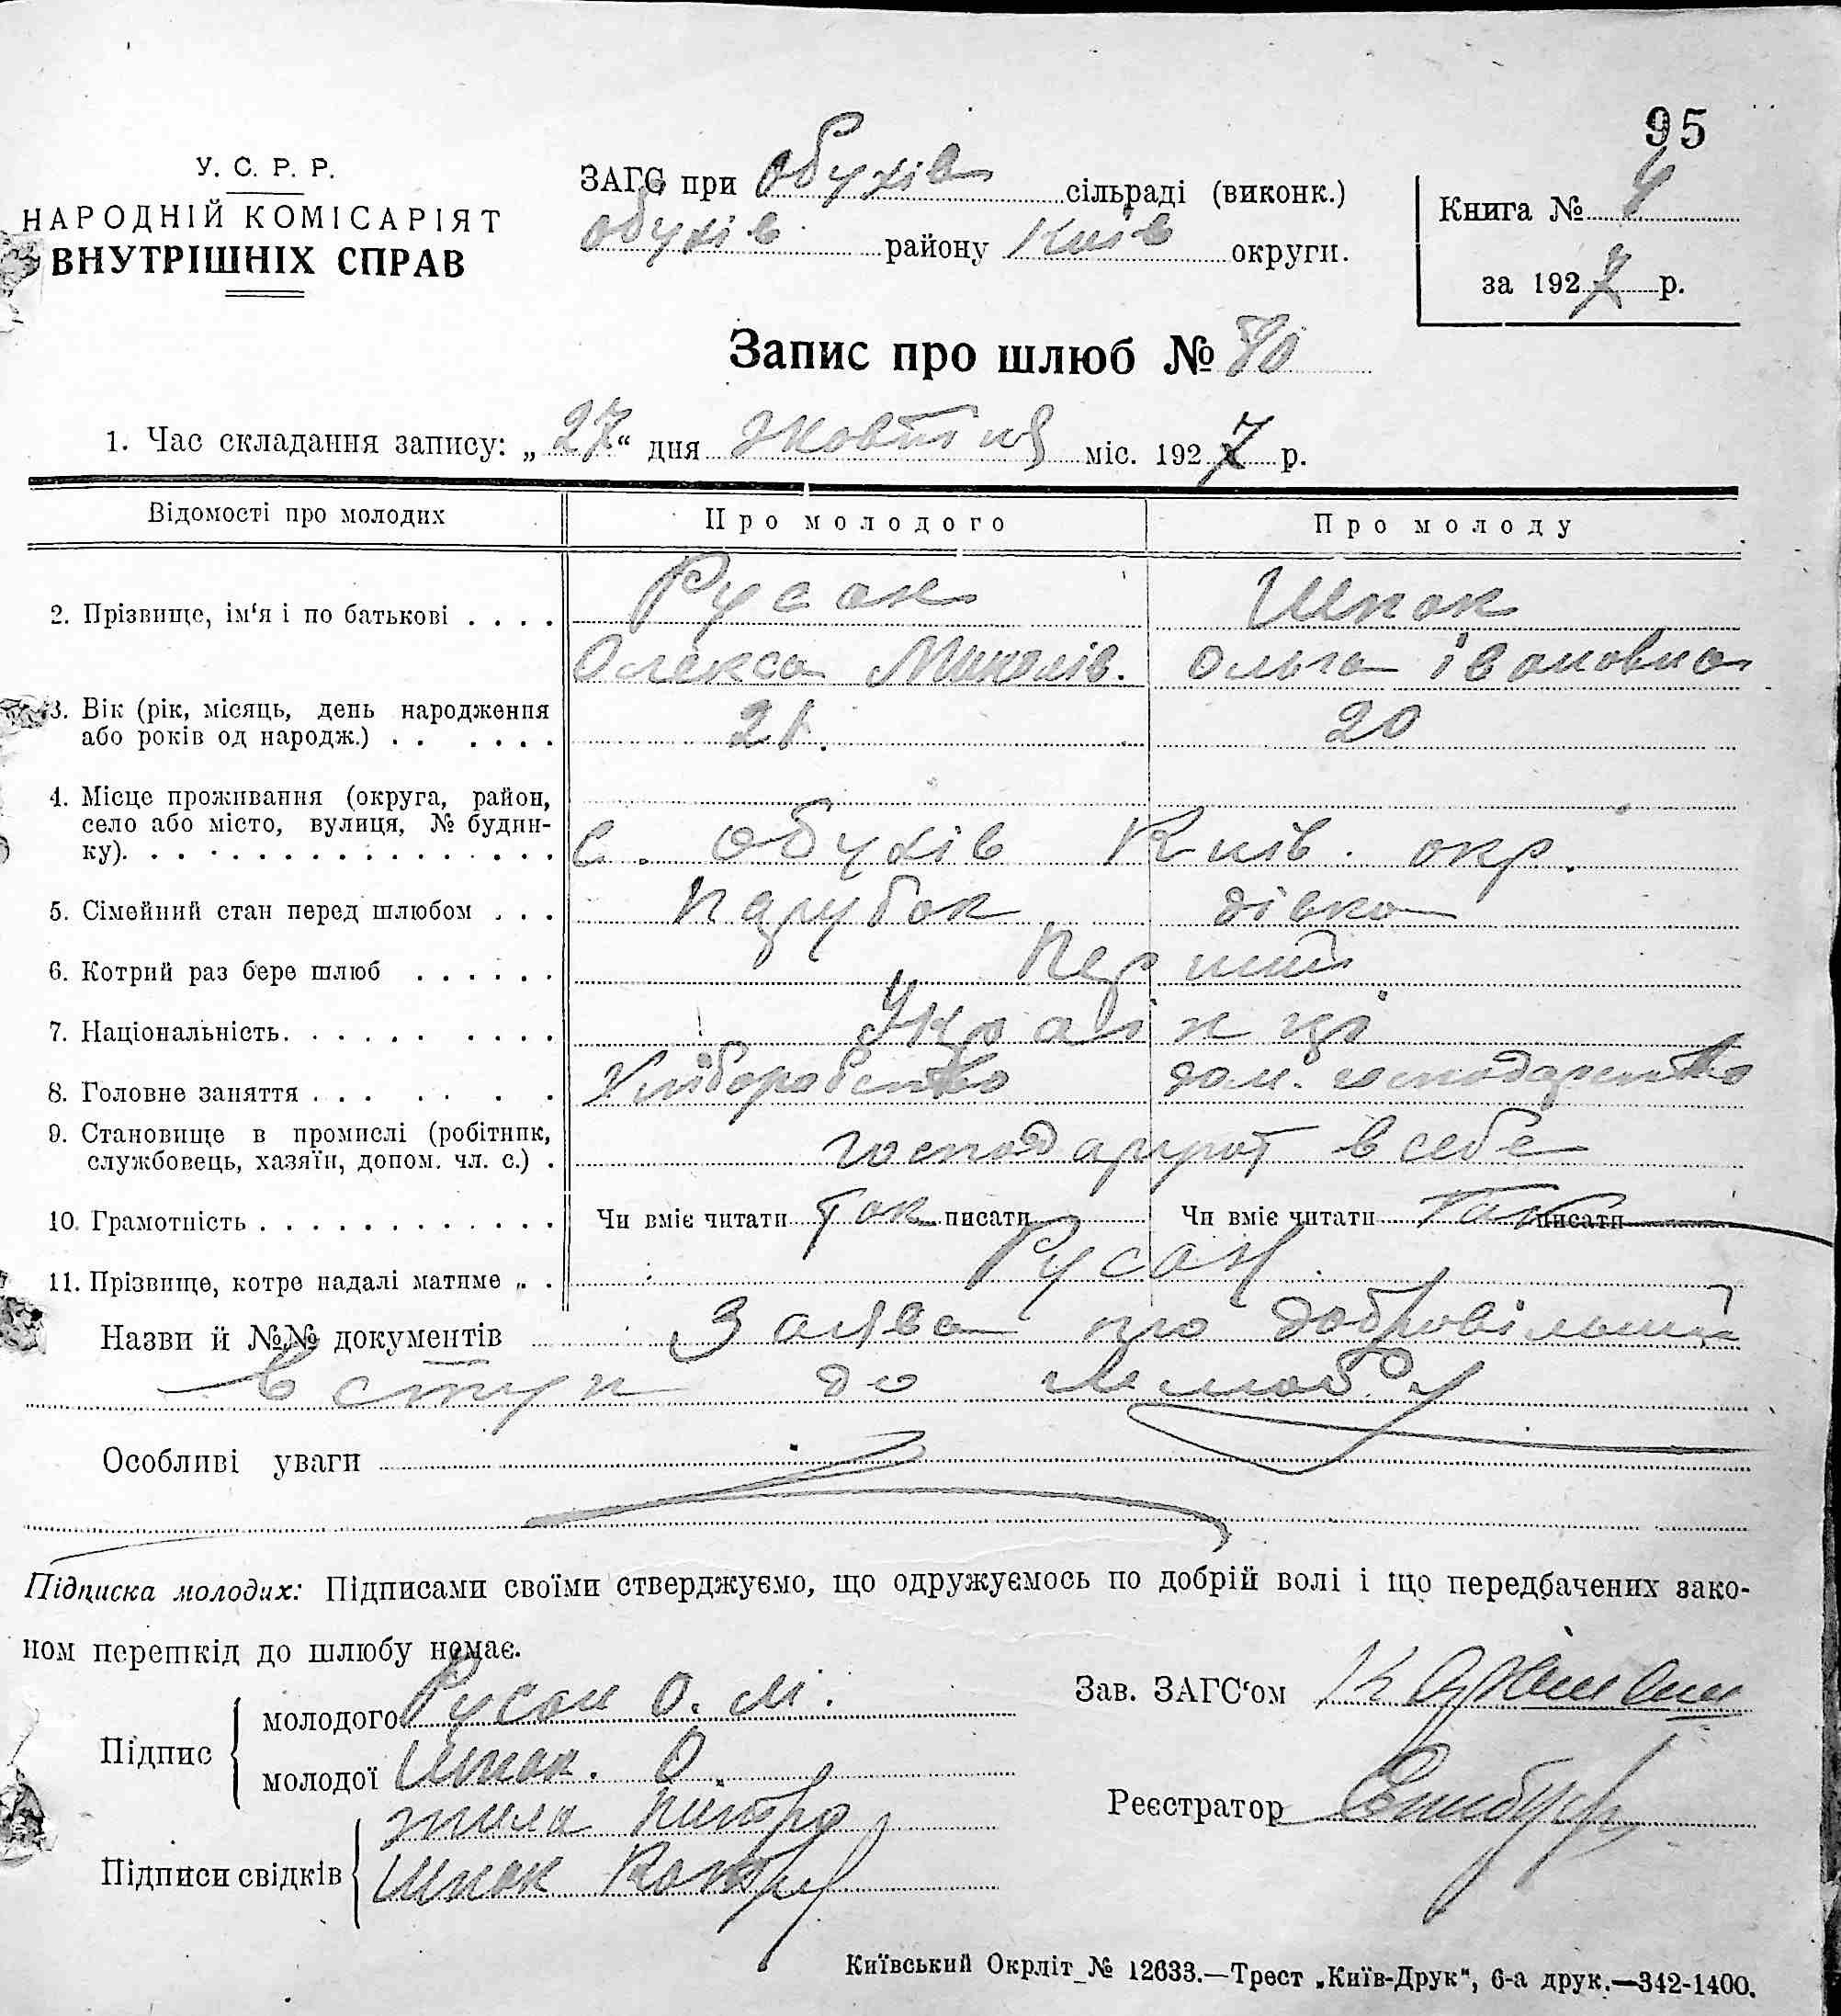 95
У. С. Р. Р.
НАРОДНІЙ КОМІСАРІЯТ
ВНУТРІШНІХ СПРАВ
ЗАГС при Обухів сільраді (виконк.)
Обухів району Київ округи.
Книга № 4
за 1927 р.
Запис про шлюб № 70
1. Час складання запису: „27“ дня Жовтня міс. 1927 р.
Відомості про молодих Про молодого Про молоду
2. Прізвище, ім‘я і по батькові . . . . Русан Шпак
Олекса Миколів. Ольга Івановна
3. Вік (рік, місяць, день народження
або років од народж.) . . . . . . 21. 20
4. Місце проживання (округа, район,
село або місто, вулиця, № будин-
ку). . . . . . . . . . . . . . . . С. Обухів Київ. окр.
5. Сімейний стан перед шлюбом . . . Парубок дівка
6. Котрий раз бере шлюб . . . . . . Перший
7. Національність. . . . . . . . . . Українці
8. Головне заняття . . . . . . . . Хліборобство дом. господарство
9. Становище в промислі (робітник,
службовець, хазяїн, допом. чл. с.) . господарюют в себе
10. Грамотність . . . . . . . . . . . . Чи вміє читати так писати Чи вміє читати так писати
11. Прізвище, котре надалі матиме „ . Русан
Назви й №№ документів Заява про добровільний
вступ до шлюбу
Особливі уваги
Підписка молодих: Підписами своїми стверджуємо, що одружуємось по добрій волі і що передбачених зако-
ном перешкід до шлюбу немає.
Підпис
молодого Русан О. М.
молодої Шпак. О
Зав. ЗАГС‘ом
Реєстратор
Підписи свідків
Шпак
Київський Окрліт № 12633.—Трест „Київ-Друк“, 6-а друк.—342-1400.